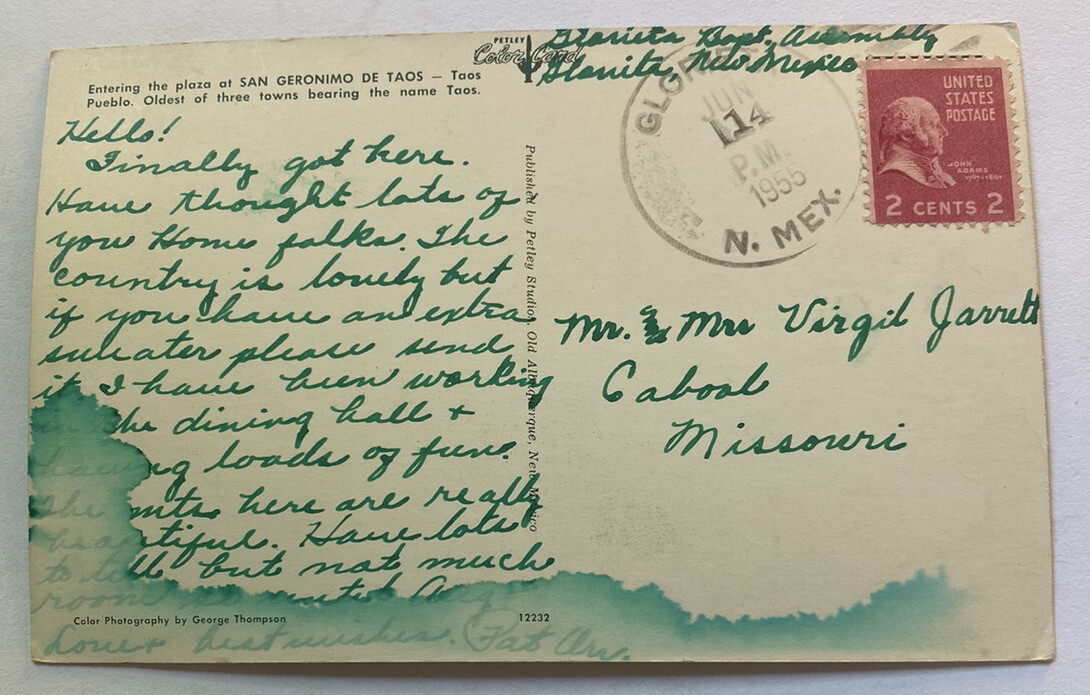 PETLEY
Color Card
Glorieta Bapt. Assembly
Glorieta, New Mexico
Entering the plaza at SAN GERONIMO DE TAOS — Taos
Pueblo. Oldest of three towns bearing the name Taos.
Hello!
Finally got here.
Have thought lots of
you Home folks. The
country is lovely but
if you have an extra
sweater please send
it. I have been working
in the dining hall &
having loads of fun.
The mts here are really
beautiful. Have lots
to tell but not much
room
Love & best wishes.
Color Photography by George Thompson
12232
Published by Petley Studios, Old Albuquerque, New Mexico
GLORIETA
JUN
14
P.M.
1956
N. MEX.
UNITED
STATES
POSTAGE
JOHN
ADAMS
1797-1801
2 CENTS 2
Mr. & Mrs Virgil Jarrett
Cabool
Missouri